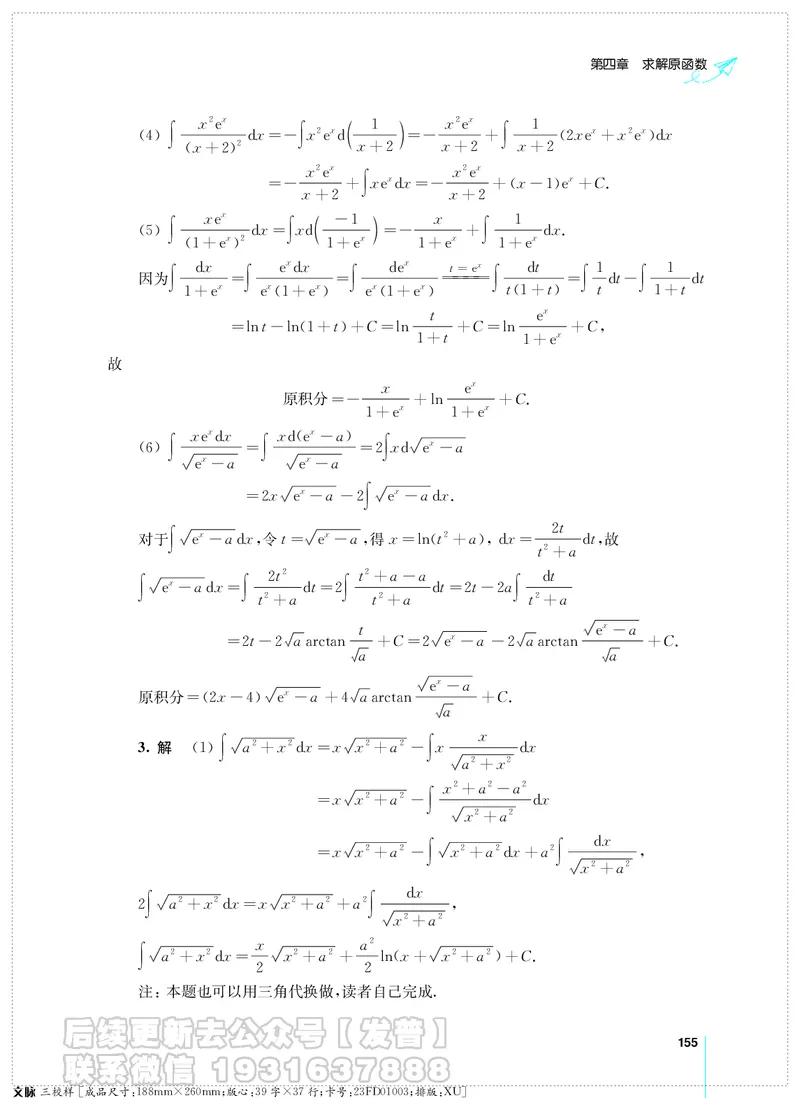 第四章 求解原函数
(4) ∫ x²eˣ/(x+2)² dx = −∫x²eˣd(1/(x+2)) = − x²eˣ/(x+2) + ∫ 1/(x+2) (2xeˣ+x²eˣ)dx
= − x²eˣ/(x+2) + ∫xeˣdx = − x²eˣ/(x+2) + (x−1)eˣ + C.
(5) ∫ xeˣ/(1+eˣ)² dx = ∫xd(−1/(1+eˣ)) = − x/(1+eˣ) + ∫ 1/(1+eˣ) dx.
因为∫ dx/(1+eˣ) = ∫ eˣdx/(eˣ(1+eˣ)) = ∫ deˣ/(eˣ(1+eˣ)) ==(t=eˣ)== ∫ dt/(t(1+t)) = ∫ 1/t dt − ∫ 1/(1+t) dt
= ln t − ln(1+t) + C = ln t/(1+t) + C = ln eˣ/(1+eˣ) + C,
故
原积分 = − x/(1+eˣ) + ln eˣ/(1+eˣ) + C.
(6) ∫ xeˣdx/√(eˣ−a) = ∫ xd(eˣ−a)/√(eˣ−a) = 2∫xd√(eˣ−a)
= 2x√(eˣ−a) − 2∫√(eˣ−a)dx.
对于∫√(eˣ−a)dx,令 t=√(eˣ−a),得 x=ln(t²+a), dx= 2t/(t²+a) dt,故
∫√(eˣ−a)dx = ∫ 2t²/(t²+a) dt = 2∫ (t²+a−a)/(t²+a) dt = 2t − 2a∫ dt/(t²+a)
= 2t − 2√a arctan t/√a + C = 2√(eˣ−a) − 2√a arctan √(eˣ−a)/√a + C.
原积分 = (2x−4)√(eˣ−a) + 4√a arctan √(eˣ−a)/√a + C.
3. 解 (1) ∫√(a²+x²)dx = x√(x²+a²) − ∫x x/√(a²+x²) dx
= x√(x²+a²) − ∫ (x²+a²−a²)/√(x²+a²) dx
= x√(x²+a²) − ∫√(x²+a²)dx + a²∫ dx/√(x²+a²),
2∫√(a²+x²)dx = x√(x²+a²) + a²∫ dx/√(x²+a²),
∫√(a²+x²)dx = x/2 √(x²+a²) + a²/2 ln(x+√(x²+a²)) + C.
注: 本题也可以用三角代换做,读者自己完成.
后续更新去公众号【发普】
联系微信 1931637888
155
文脉 三校样 [成品尺寸:188mm×260mm;版心:39 字×37 行;卡号:23FD01003;排版:XU]